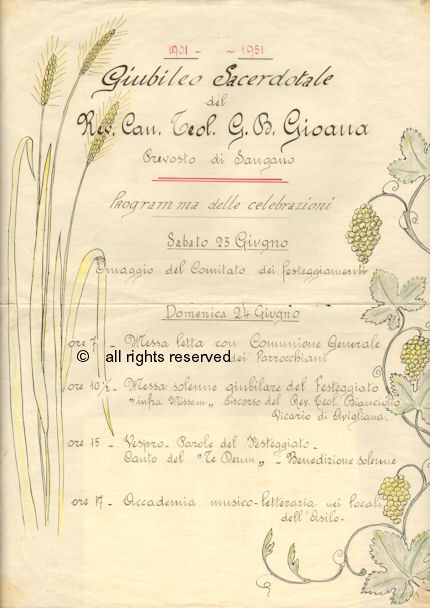 1901 - - 1951
Giubileo Sacerdotale
del
Rev. Can. Teol. G. B. Gioana
Prevosto di Sangano
Programma delle celebrazioni
Sabato 23 Giugno
Omaggio del Comitato dei festeggiamenti
Domenica 24 Giugno
ore 7 - Messa letta con Comunione Generale
dei Parrocchiani
© all rights reserved
ore 10½ - Messa solenne giubilare del Festeggiato
"infra Missam" Discorso del Rev. Teol. Bianciotto
Vicario di Avigliana.
ore 15 - Vespro - Parole del Festeggiato -
Canto del "Te Deum" - Benedizione solenne
ore 17 - Accademia musico-letteraria nei locali
dell'Asilo.